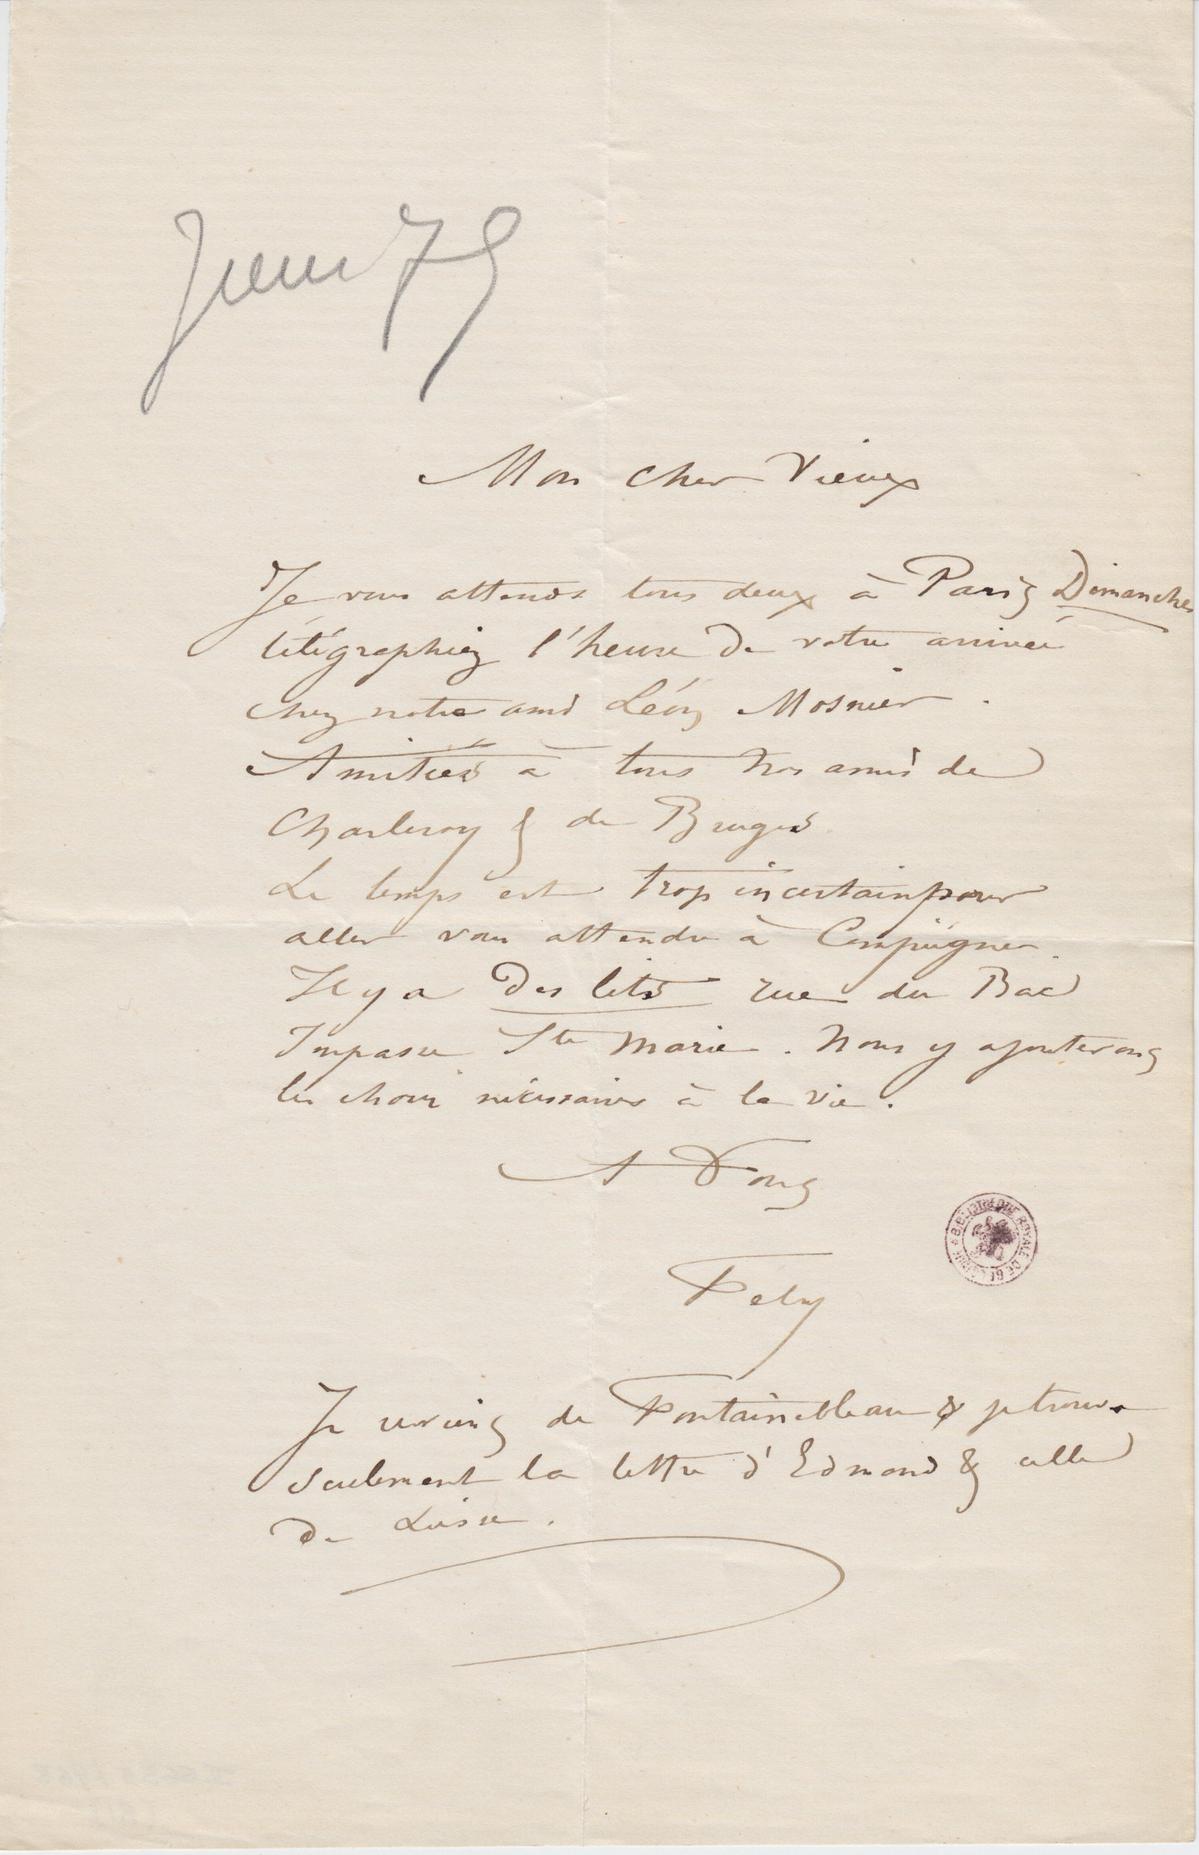 Juin 79
Mon cher Vieux
Je vous attends tous deux à Paris Dimanche
télégraphiez l'heure de votre arrivée
chez notre ami Léon Mosnier.
Amitiés à tous nos amis de
Charleroy & de Bruges
Le temps est trop incertain pour
aller vous attendre à Compiègne.
Il y a des lits rue du Bac
Impasse Ste Marie. Nous y ajouterons
les choses nécessaires à la vie.
A Vous
Fély
BIBLIOTHEQUE ROYALE DE BELGIQUE
Je reviens de Fontainebleau & je trouve
seulement la lettre d'Edmond & celle
de